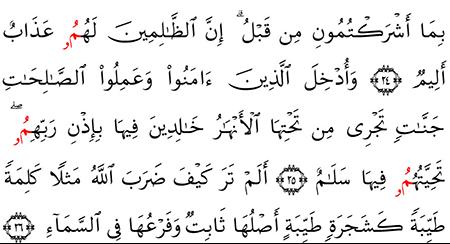 بِمَا أَشْرَكْتُمُونِ مِن قَبْلُ ۗ إِنَّ ٱلظَّـٰلِمِينَ لَهُمُۥ عَذَابٌ
أَلِيمٌ ۝٢٤ وَأُدْخِلَ ٱلَّذِينَ ءَامَنُوا۟ وَعَمِلُوا۟ ٱلصَّـٰلِحَـٰتِ
جَنَّـٰتٍ تَجْرِى مِن تَحْتِهَا ٱلْأَنْهَـٰرُ خَـٰلِدِينَ فِيهَا بِإِذْنِ رَبِّهِمُۥ ۖ
تَحِيَّتُهُمُۥ فِيهَا سَلَـٰمٌ ۝٢٥ أَلَمْ تَرَ كَيْفَ ضَرَبَ ٱللَّهُ مَثَلًا كَلِمَةً
طَيِّبَةً كَشَجَرَةٍ طَيِّبَةٍ أَصْلُهَا ثَابِتٌ وَفَرْعُهَا فِى ٱلسَّمَآءِ ۝٢٦